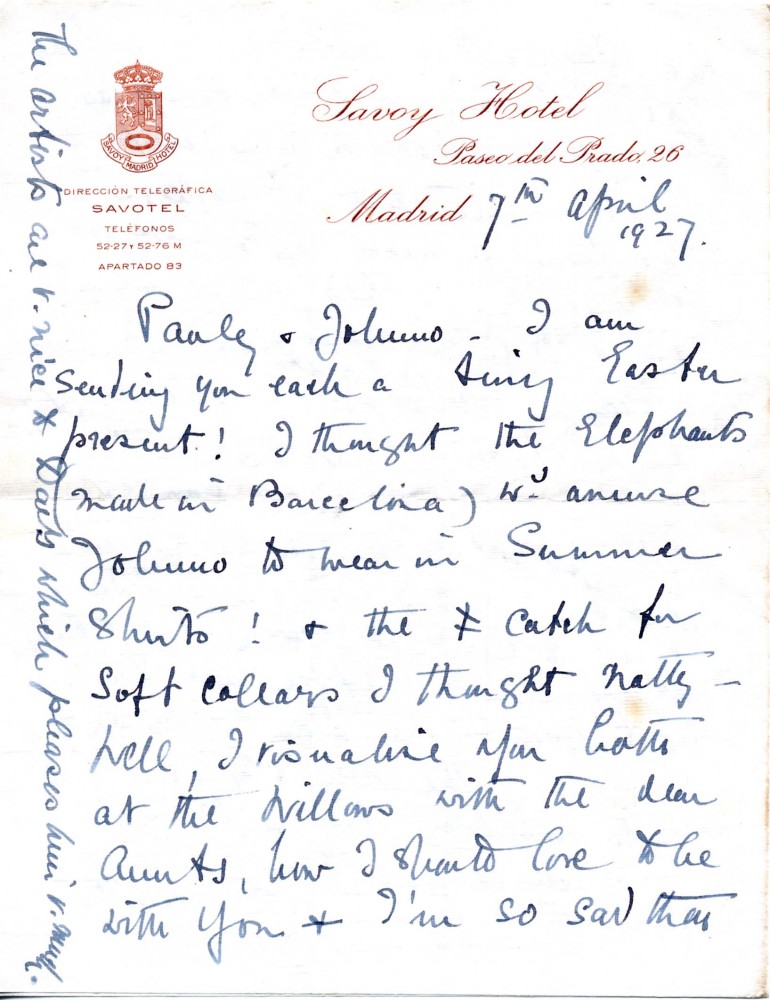 SAVOY MADRID HOTEL
DIRECCIÓN TELEGRÁFICA
SAVOTEL
TELÉFONOS
52-27 Y 52-76 M
APARTADO 83
Savoy Hotel
Paseo del Prado, 26
Madrid 7th April
1927.
Pauly & Johnno - I am
sending you each a tiny Easter
present! I thought the Elephants
(made in Barcelona) wd amuse
Johnno to wear in Summer
Shirts! & the & catch for
Soft collars I thought natty -
Well, I visualise you both
at the Willows with the dear
Aunts, how I should love to be
with you & I'm so sad that
The artists are v. nice & which pleases him v. much.